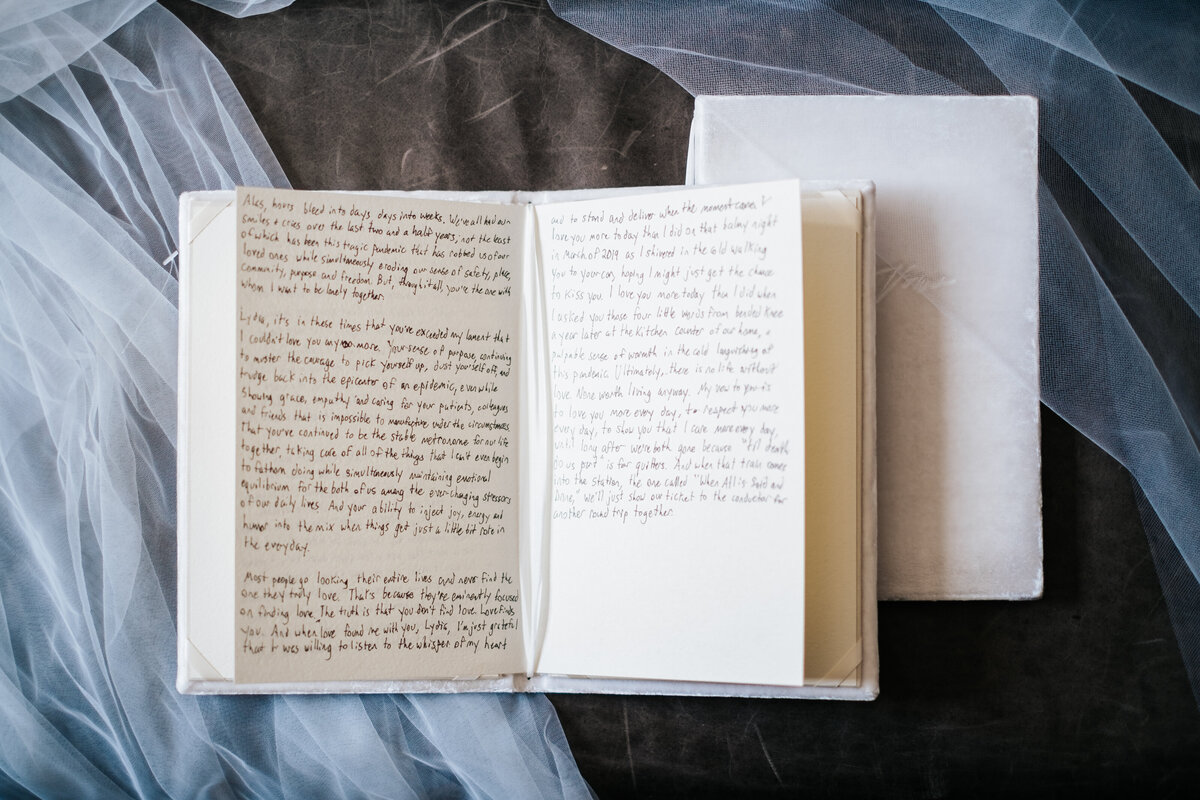 Alas, hours bleed into days, days into weeks. We've all had our
smiles + cries over the last two and a half years, not the least
of which has been this tragic pandemic that has robbed us of our
loved ones while simultaneously eroding our sense of safety, place,
community, purpose and freedom. But, through it all, you're the one with
whom I want to be lonely together.
Lydia, it's in these times that you've exceeded my lament that
I couldn't love you any more. Your sense of purpose, continuing
to muster the courage to pick yourself up, dust yourself off, and
trudge back into the epicenter of an epidemic, even while
showing grace, empathy and caring for your patients, colleagues
and friends that is impossible to manufacture under the circumstances.
That you've continued to be the stable metronome for our life
together, taking care of all of the things that I can't even begin
to fathom doing while simultaneously maintaining emotional
equilibrium for the both of us among the ever-changing stressors
of our daily lives. And your ability to inject joy, energy and
humor into the mix when things get just a little bit rote in
the everyday.
Most people go looking their entire lives and never find the
one they truly love. That's because they're eminently focused
on finding love. The truth is that you don't find love. Love finds
you. And when love found me with you, Lydia, I'm just grateful
that I was willing to listen to the whisper of my heart
and to stand and deliver when the moment came. I
love you more today than I did on that balmy night
in March of 2019 as I shivered in the cold walking
you to your car, hoping I might just get the chance
to kiss you. I love you more today than I did when
I asked you those four little words from bended knee
a year later at the kitchen counter of our home, a
palpable sense of warmth in the cold languishing of
this pandemic. Ultimately, there is no life without
love. None worth living anyway. My vow to you is
to love you more every day, to respect you more
every day, to show you that I care more every day,
until long after we're both gone because "'til death
do us part" is for quitters. And when that train comes
into the station, the one called "When All is Said and
Done," we'll just show our ticket to the conductor for
another round trip together.